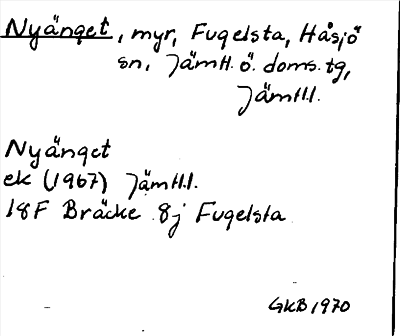 Nyänget, myr, Fugelsta, Håsjö
sn, Jämtl. ö. doms. tg,
Jämtl.l.
Nyänget
ek (1967) Jämtl.l.
18F Bräcke 8j Fugelsta
GKB 1970